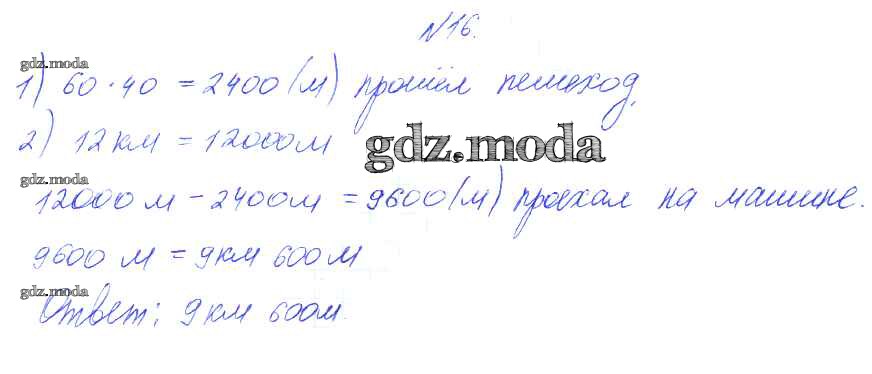 №16.
gdz.moda
1) 60·40 = 2400 (м) прошёл пешеход,
2) 12 км = 12000м
gdz.moda
gdz.moda
12000 м - 2400м = 9600 (м) проехал на машине.
9600 м = 9км 600м
gdz.moda
Ответ: 9км 600м.